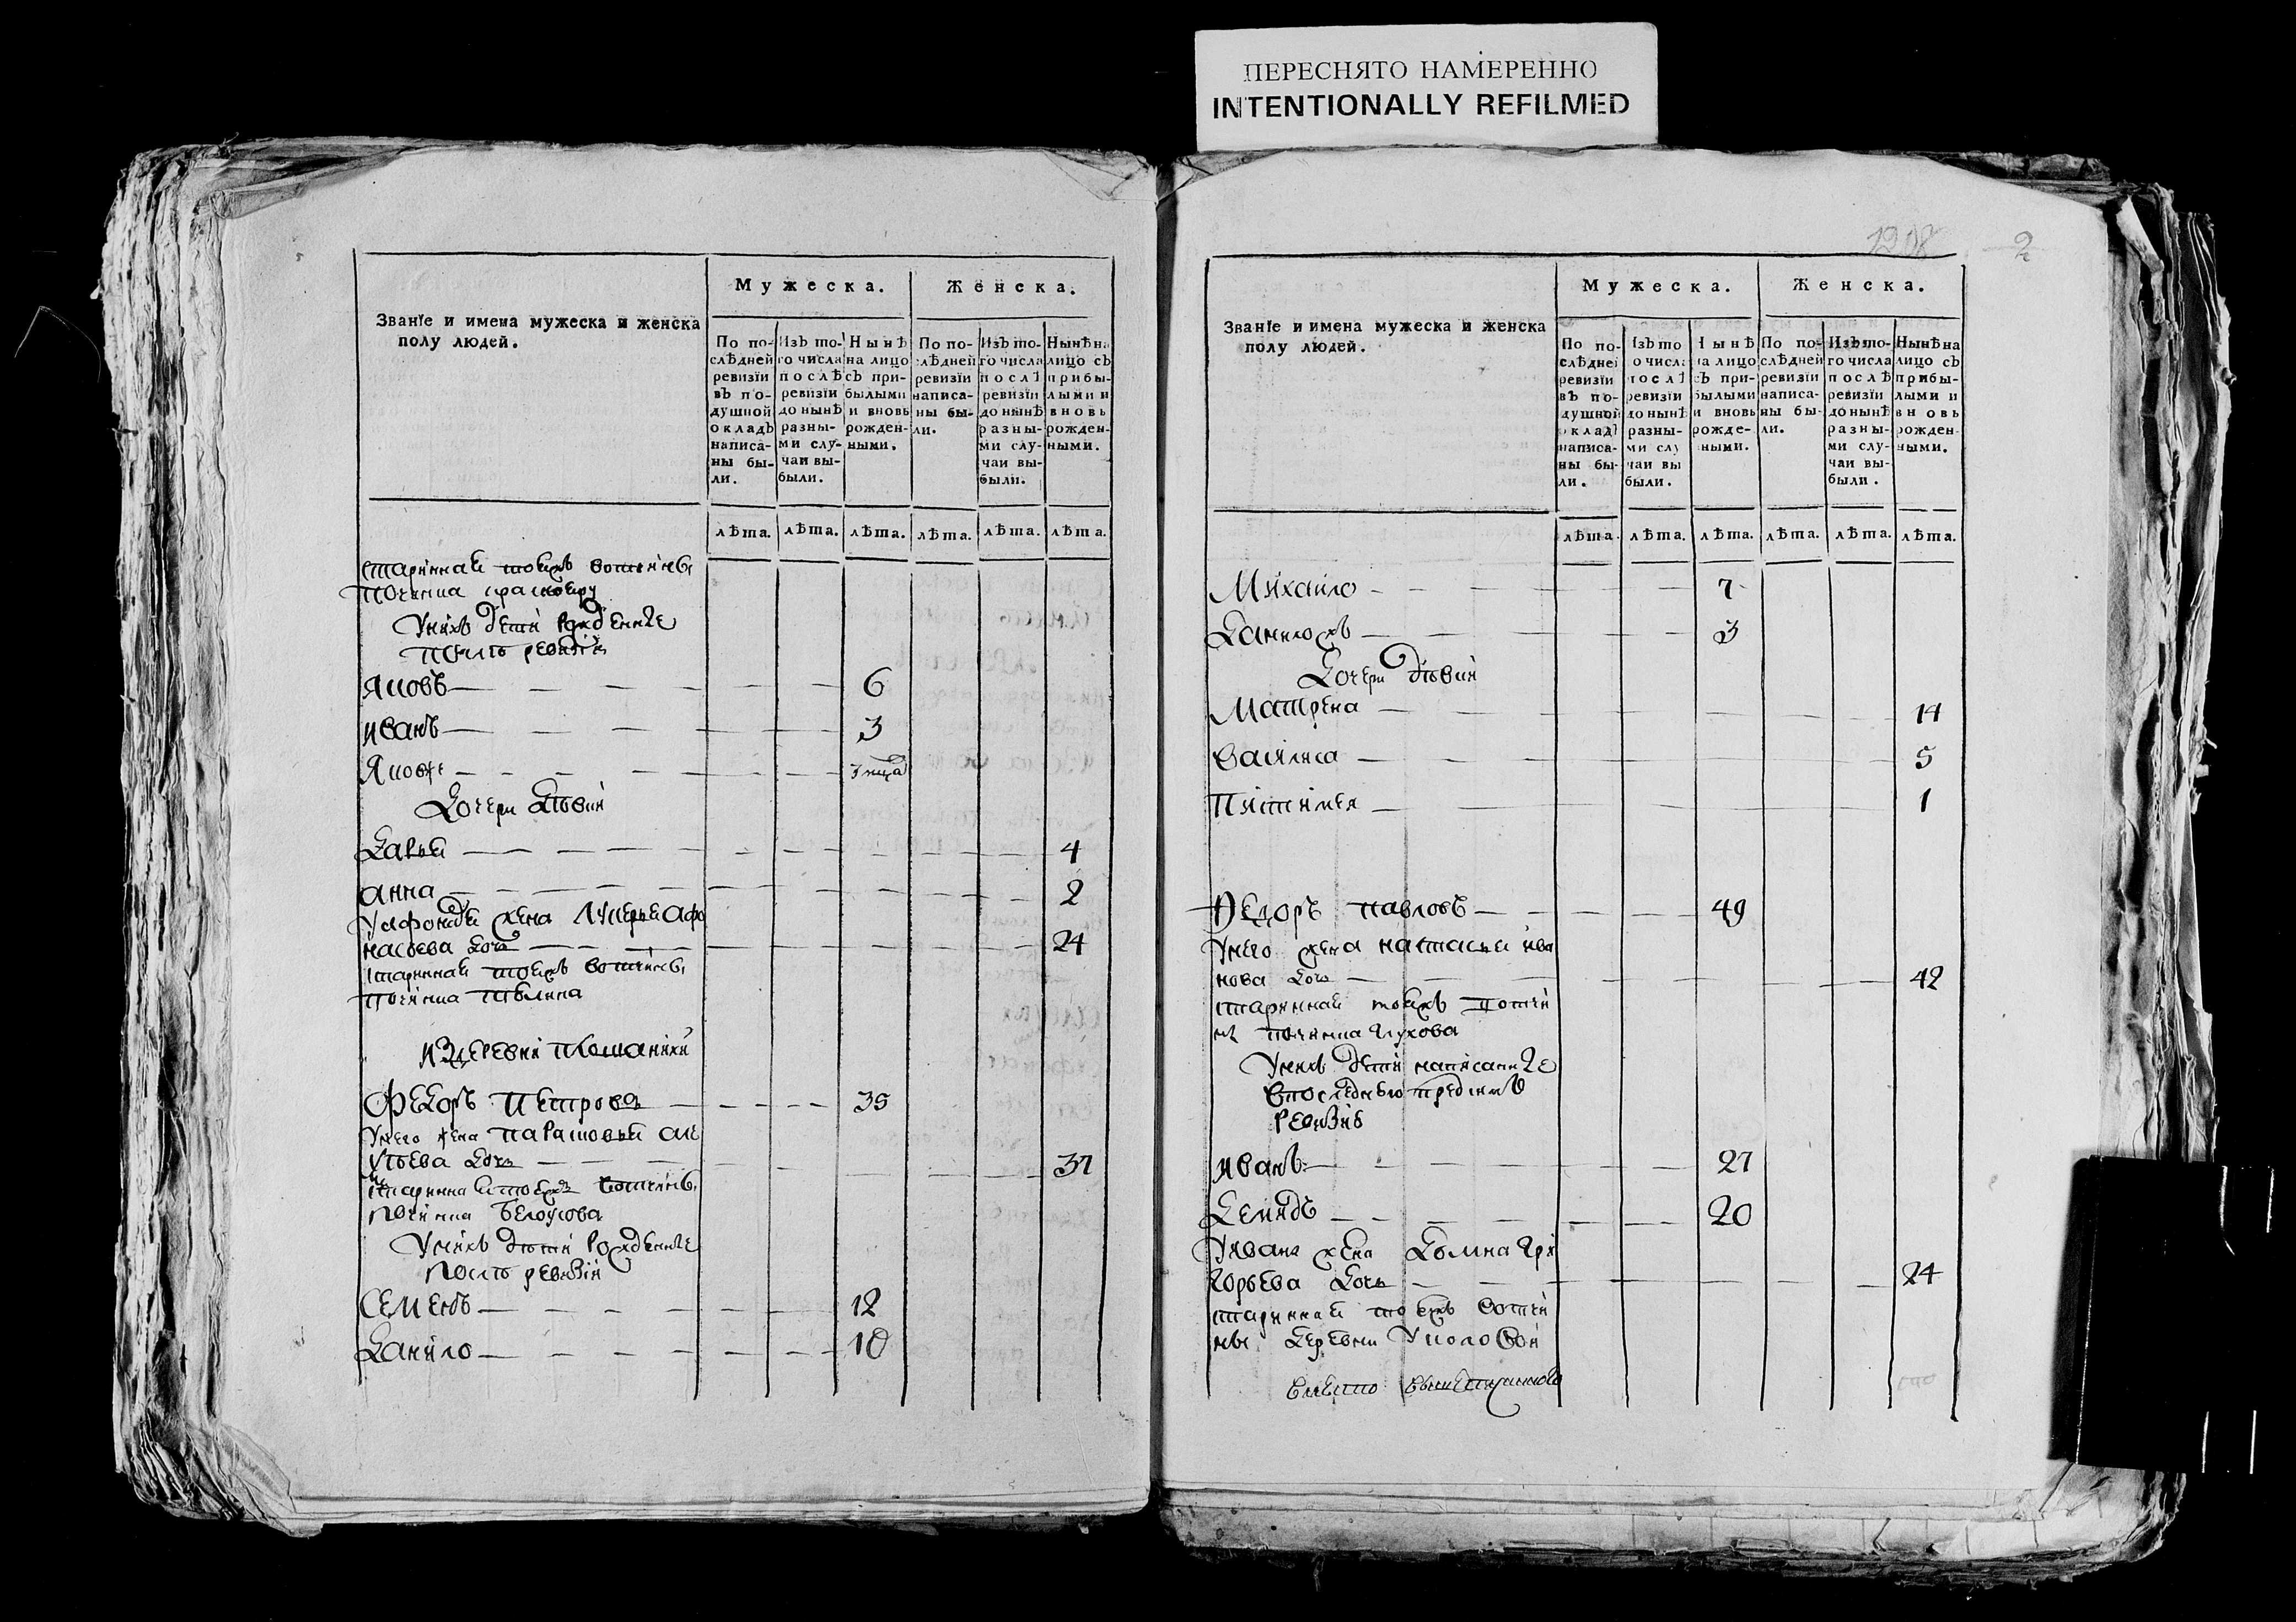 ПЕРЕСНЯТО НАМЕРЕННО
INTENTIONALLY REFILMED
Званїе и имена мужеска и женска
полу людей.
Мужеска.
Женска.
По по-
слѣдней
ревизїи
въ по-
душной
окладъ
написа-
ны бы-
ли.
Изъ то-
го числа
послѣ
ревизїи
до нынѣ
разны-
ми слу-
чаи вы-
были.
Нынѣ
на лицо
съ при-
былыми
и вновь
рожден-
ными.
По по-
слѣдней
ревизїи
написа-
ны бы-
ли.
Изъ то-
го числа
послѣ
ревизїи
до нынѣ
разны-
ми слу-
чаи вы-
были.
Нынѣ на
лицо съ
прибы-
лыми и
вновь
рожден-
ными.
лѣта. лѣта. лѣта. лѣта. лѣта. лѣта.
старинная тоежъ вотчины
починка
Унихъ дети рожденые
после ревизїи
Яковъ 6
Иванъ 3
Яковъ
Дочери девки
Дарья 4
Анна 2
жена Лукерья Афо
насьева дочь 24
старинная тоежъ вотчины
починка
Издеревни
Федоръ Петровъ 35
Унего жена Парасковья
дочь 37
старинная тоежъ вотчины
починка Белоусова
Унихъ дети рожденые
после ревизїи
Семенъ 12
Данило 10
1208
2
Званїе и имена мужеска и женска
полу людей.
Мужеска.
Женска.
По по-
слѣдней
ревизїи
въ по-
душной
окладъ
написа-
ны бы-
ли.
Изъ то
го числа
послѣ
ревизїи
до нынѣ
разны-
ми слу
чаи вы
были.
Нынѣ
на лицо
съ при-
былыми
и вновь
рожде-
ными.
По по-
слѣдней
ревизїи
написа-
ны бы-
ли.
Изъ то-
го числа
послѣ
ревизїи
до нынѣ
разны-
ми слу-
чаи вы-
были.
Нынѣ на
лицо съ
прибы-
лыми и
вновь
рожден-
ными.
лѣта. лѣта. лѣта. лѣта. лѣта. лѣта.
Михайло 7
3
Дочери девки
Матрена 14
Василиса 5
1
Федоръ Павловъ 49
Унего жена Наталья Ива
нова дочь 42
старинная тоежъ вотчи
ны починка Глухова
Унихъ дети написаные
впоследнею предъ симъ
ревизию
Иванъ 27
Демидъ 20
Уивана жена Домна Гри
горьева дочь 24
старинная тоежъ вотчи
ны деревни Уколовой